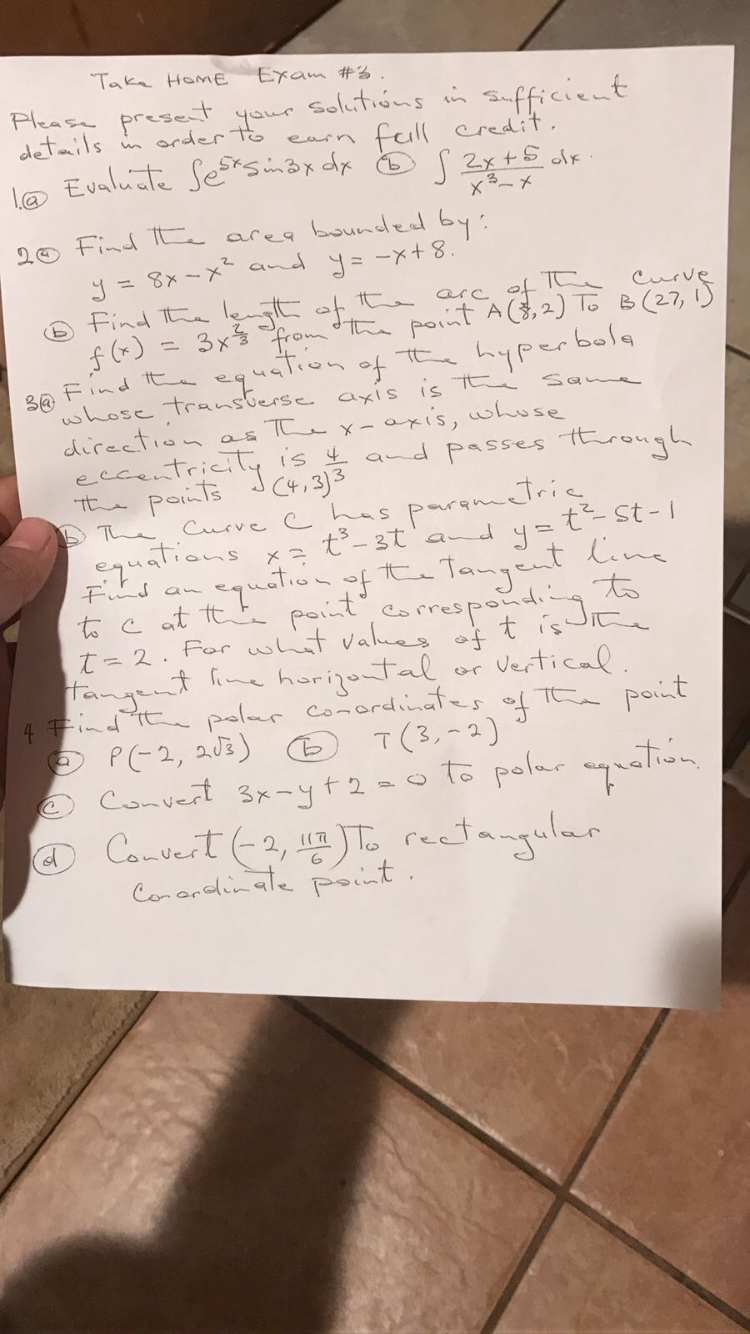 Take HOME Exam #3.
Please present your solutions in sufficient
details in order to earn full credit.
1.ⓐ Evaluate ∫e^{5x}sin3x dx ⓑ ∫ (2x+5)/(x^3-x) dx.
2ⓐ Find the area bounded by:
y = 8x-x^2 and y = -x+8.
ⓑ Find the length of the arc of the curve
f(x) = 3x^{2/3} from the point A(8,2) To B(27,1)
3ⓐ Find the equation of the hyperbola
whose transverse axis is the same
direction as the x-axis, whose
eccentricity is 4/3 and passes through
the points (4,3)
ⓑ The curve C has parametric
equations x = t^3-3t and y = t^2-5t-1
Find an equation of the tangent line
to C at the point corresponding to
t = 2. For what values of t is the
tangent line horizontal or vertical.
4 Find the polar co-ordinates of the point
ⓐ P(-2, 2√3) ⓑ T(3,-2)
ⓒ Convert 3x-y+2=0 to polar equation.
ⓓ Convert (-2, 11π/6) To rectangular
Co-ordinate point.